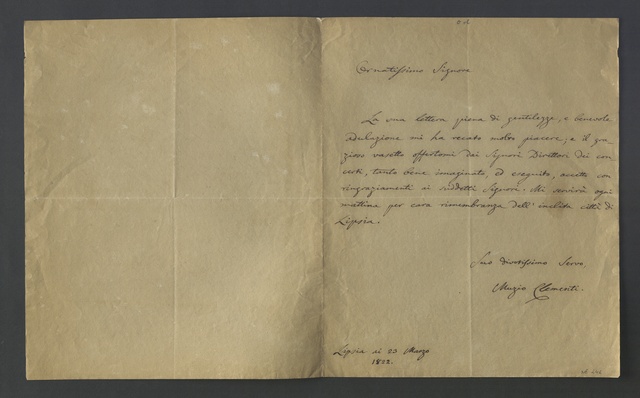 Ornatissimo Signore
La sua lettera piena di gentilezze, e benevola
adulazione mi ha recato molto piacere, e il gra-
zioso vasetto offertomi dai Signori Direttori dei con-
certi, tanto bene imaginato, ed eseguito, accetto con
ringraziamenti ai suddetti Signori. Mi servirà ogni
mattina per cara rimembranza dell' inclita città di
Lipsia.
Suo divotissimo Servo,
Muzio Clementi.
Lipsia ai 23 Marzo
1822.